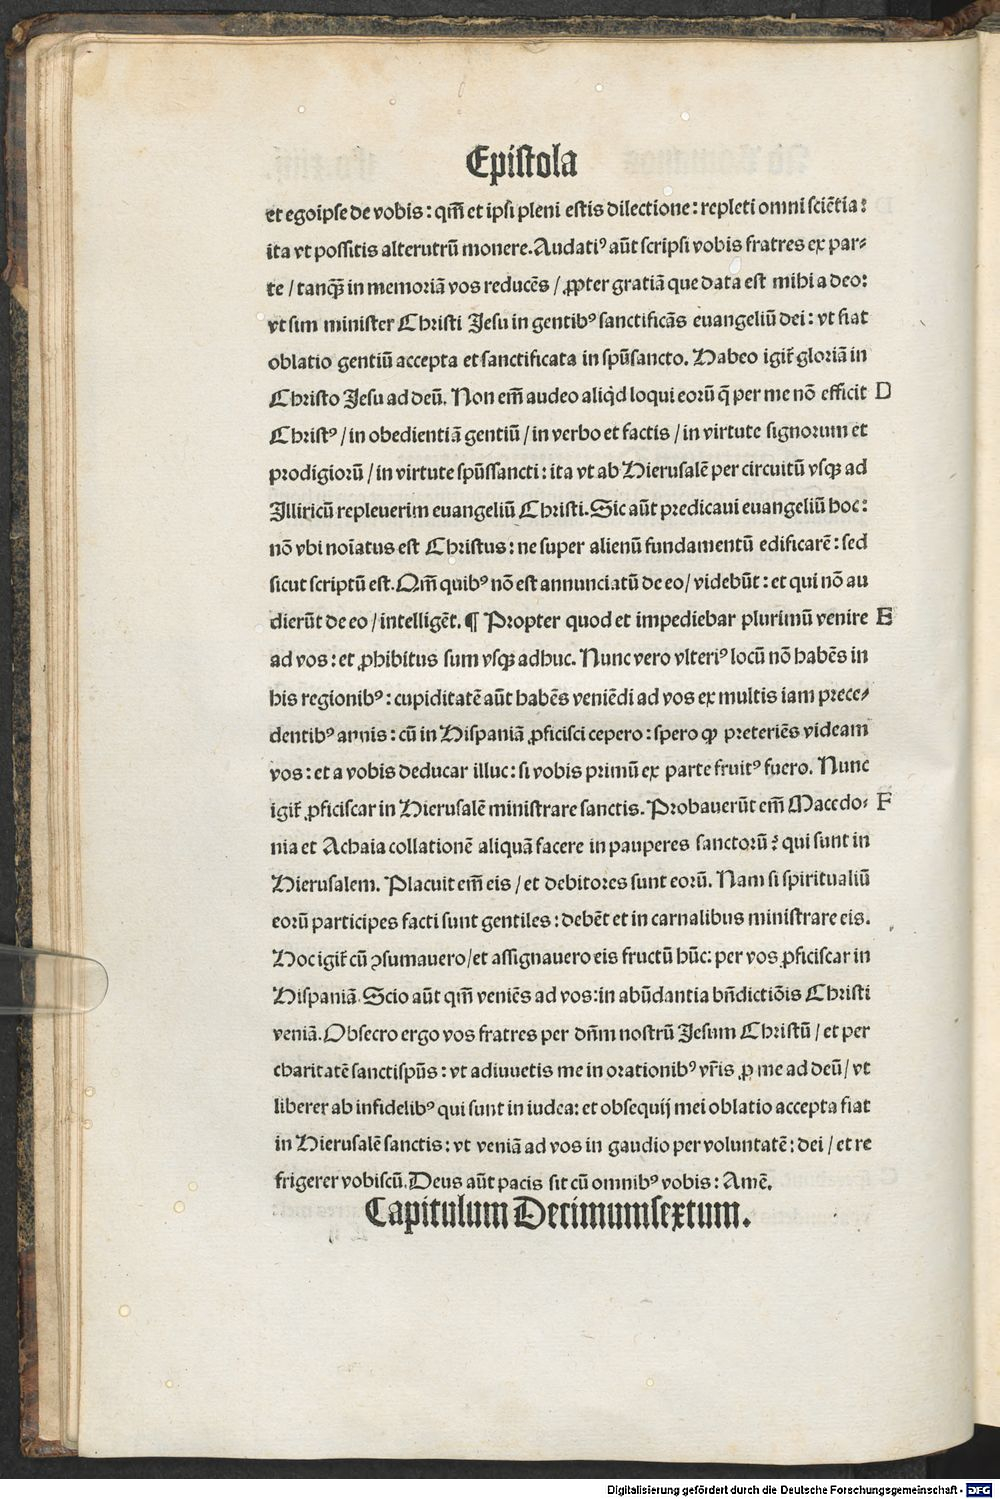 Epistola
et egoipse de vobis : qm̄ et ipsi pleni estis dilectione : repleti omni sciētia :
ita vt possitis alterutrū monere. Audatiꝰ aūt scripsi vobis fratres ex par⸗
te / tanqꝫ̄ in memoriā vos reducēs / ꝓpter gratiā que data est mihi a deo :
vt sim minister Christi Jesu in gentibꝰ sanctificās euangeliū dei : vt fiat
oblatio gentiū accepta et sanctificata in spūsancto. Habeo igit̄ gloriā in
Christo Jesu ad deū. Non em̄ audeo aliqͥd loqui eorū q̄ per me nō efficit D
Christꝰ / in obedientiā gentiū / in verbo et factis / in virtute signorum et
prodigiorū / in virtute spūssancti : ita vt ab Hierusalē per circuitū vsqꝫ ad
Illiricū repleuerim euangeliū Christi. Sic aūt predicaui euangeliū hoc :
nō vbi noīatus est Christus : ne super alienū fundamentū edificarē : sed
sicut scriptū est. Qm̄ quibꝰ nō est annunciatū de eo / videbūt : et qui nō au
dierūt de eo / intelligēt. ¶ Propter quod et impediebar plurimū venire E
ad vos : et ꝓhibitus sum vsqꝫ adhuc. Nunc vero vlteriꝰ locū nō habēs in
his regionibꝰ : cupiditatē aūt habēs veniēdi ad vos ex multis iam prece⸗
dentibꝰ annis : cū in Hispaniā ꝓficisci cepero : spero ꝙ preteriēs videam
vos : et a vobis deducar illuc : si vobis primū ex parte fruitꝰ fuero. Nunc
igit̄ ꝓficiscar in Hierusalē ministrare sanctis. Probauerūt em̄ Macedo⸗ F
nia et Achaia collationē aliquā facere in pauperes sanctorū : qui sunt in
Hierusalem. Placuit em̄ eis / et debitores sunt eorū. Nam si spiritualiū
eorū participes facti sunt gentiles : debēt et in carnalibus ministrare eis.
Hoc igit̄ cū ꝯsumauero / et assignauero eis fructū hūc : per vos ꝓficiscar in
Hispaniā. Scio aūt qm̄ veniēs ad vos : in abūdantia bn̄dictiōis Christi
veniā. Obsecro ergo vos fratres per dn̄m nostrū Jesum Christū / et per
charitatē sanctispūs : vt adiuuetis me in orationibꝰ vr̄is ꝓ me ad deū / vt
liberer ab infidelibꝰ qui sunt in iudea : et obsequij mei oblatio accepta fiat
in Hierusalē sanctis : vt veniā ad vos in gaudio per voluntatē : dei / et re
frigerer vobiscū. Deus aūt pacis sit cū omnibꝰ vobis : Amē.
Capitulum Decimumsextum.
Digitalisierung gefördert durch die Deutsche Forschungsgemeinschaft - DFG